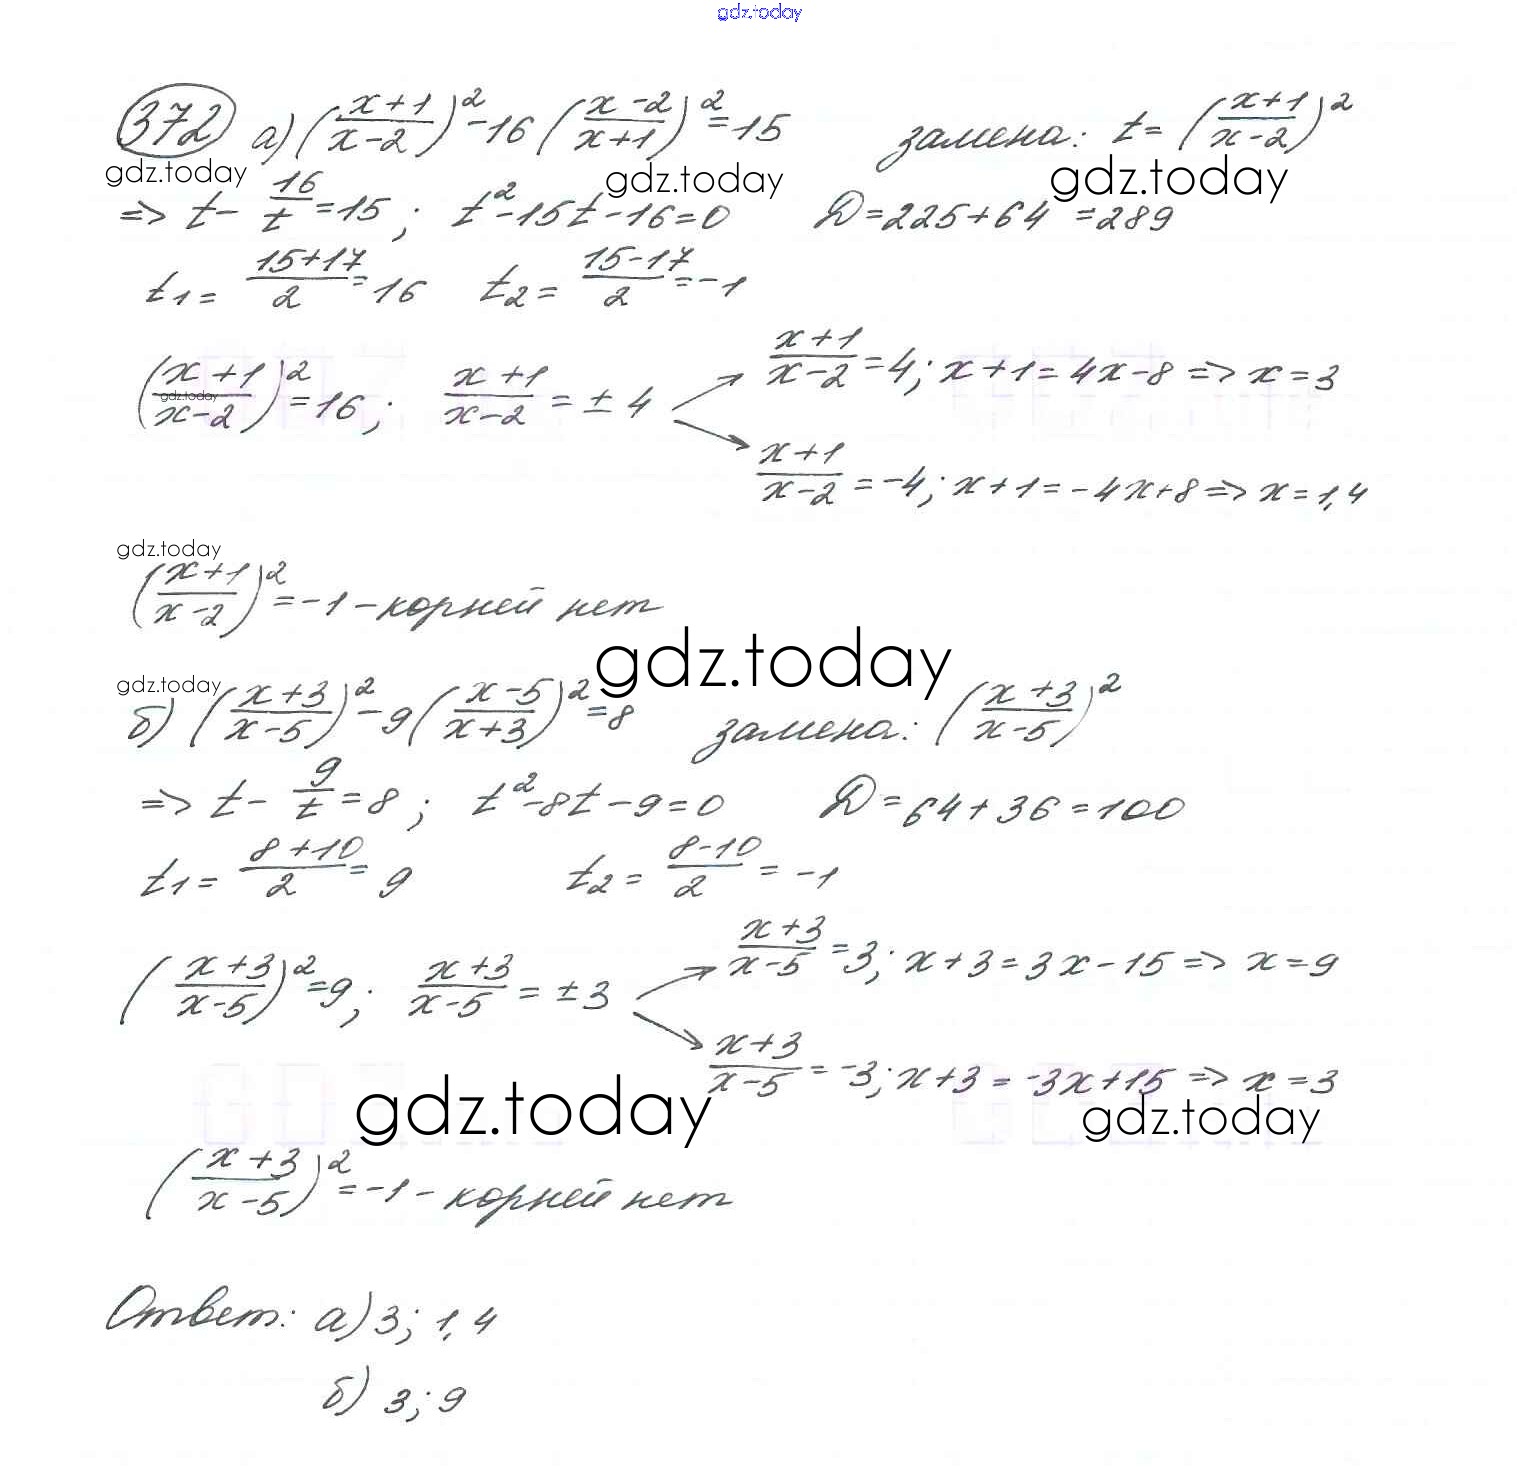 gdz.today
372 а) ((x+1)/(x-2))² - 16 ((x-2)/(x+1))² = 15 замена: t = ((x+1)/(x-2))²
gdz.today gdz.today gdz.today
=> t - 16/t = 15; t² - 15t - 16 = 0 D = 225 + 64 = 289
t₁ = (15+17)/2 = 16 t₂ = (15-17)/2 = -1
((x+1)/(x-2))² = 16; (x+1)/(x-2) = ± 4
gdz.today
(x+1)/(x-2) = 4; x+1 = 4x-8 => x = 3
(x+1)/(x-2) = -4; x+1 = -4x+8 => x = 1,4
gdz.today
((x+1)/(x-2))² = -1 - корней нет
gdz.today
gdz.today
б) ((x+3)/(x-5))² - 9 ((x-5)/(x+3))² = 8 замена: ((x+3)/(x-5))²
=> t - 9/t = 8; t² - 8t - 9 = 0 D = 64 + 36 = 100
t₁ = (8+10)/2 = 9 t₂ = (8-10)/2 = -1
((x+3)/(x-5))² = 9; (x+3)/(x-5) = ± 3
(x+3)/(x-5) = 3; x+3 = 3x-15 => x = 9
(x+3)/(x-5) = -3; x+3 = -3x+15 => x = 3
gdz.today gdz.today
((x+3)/(x-5))² = -1 - корней нет
Ответ: а) 3; 1,4
б) 3; 9